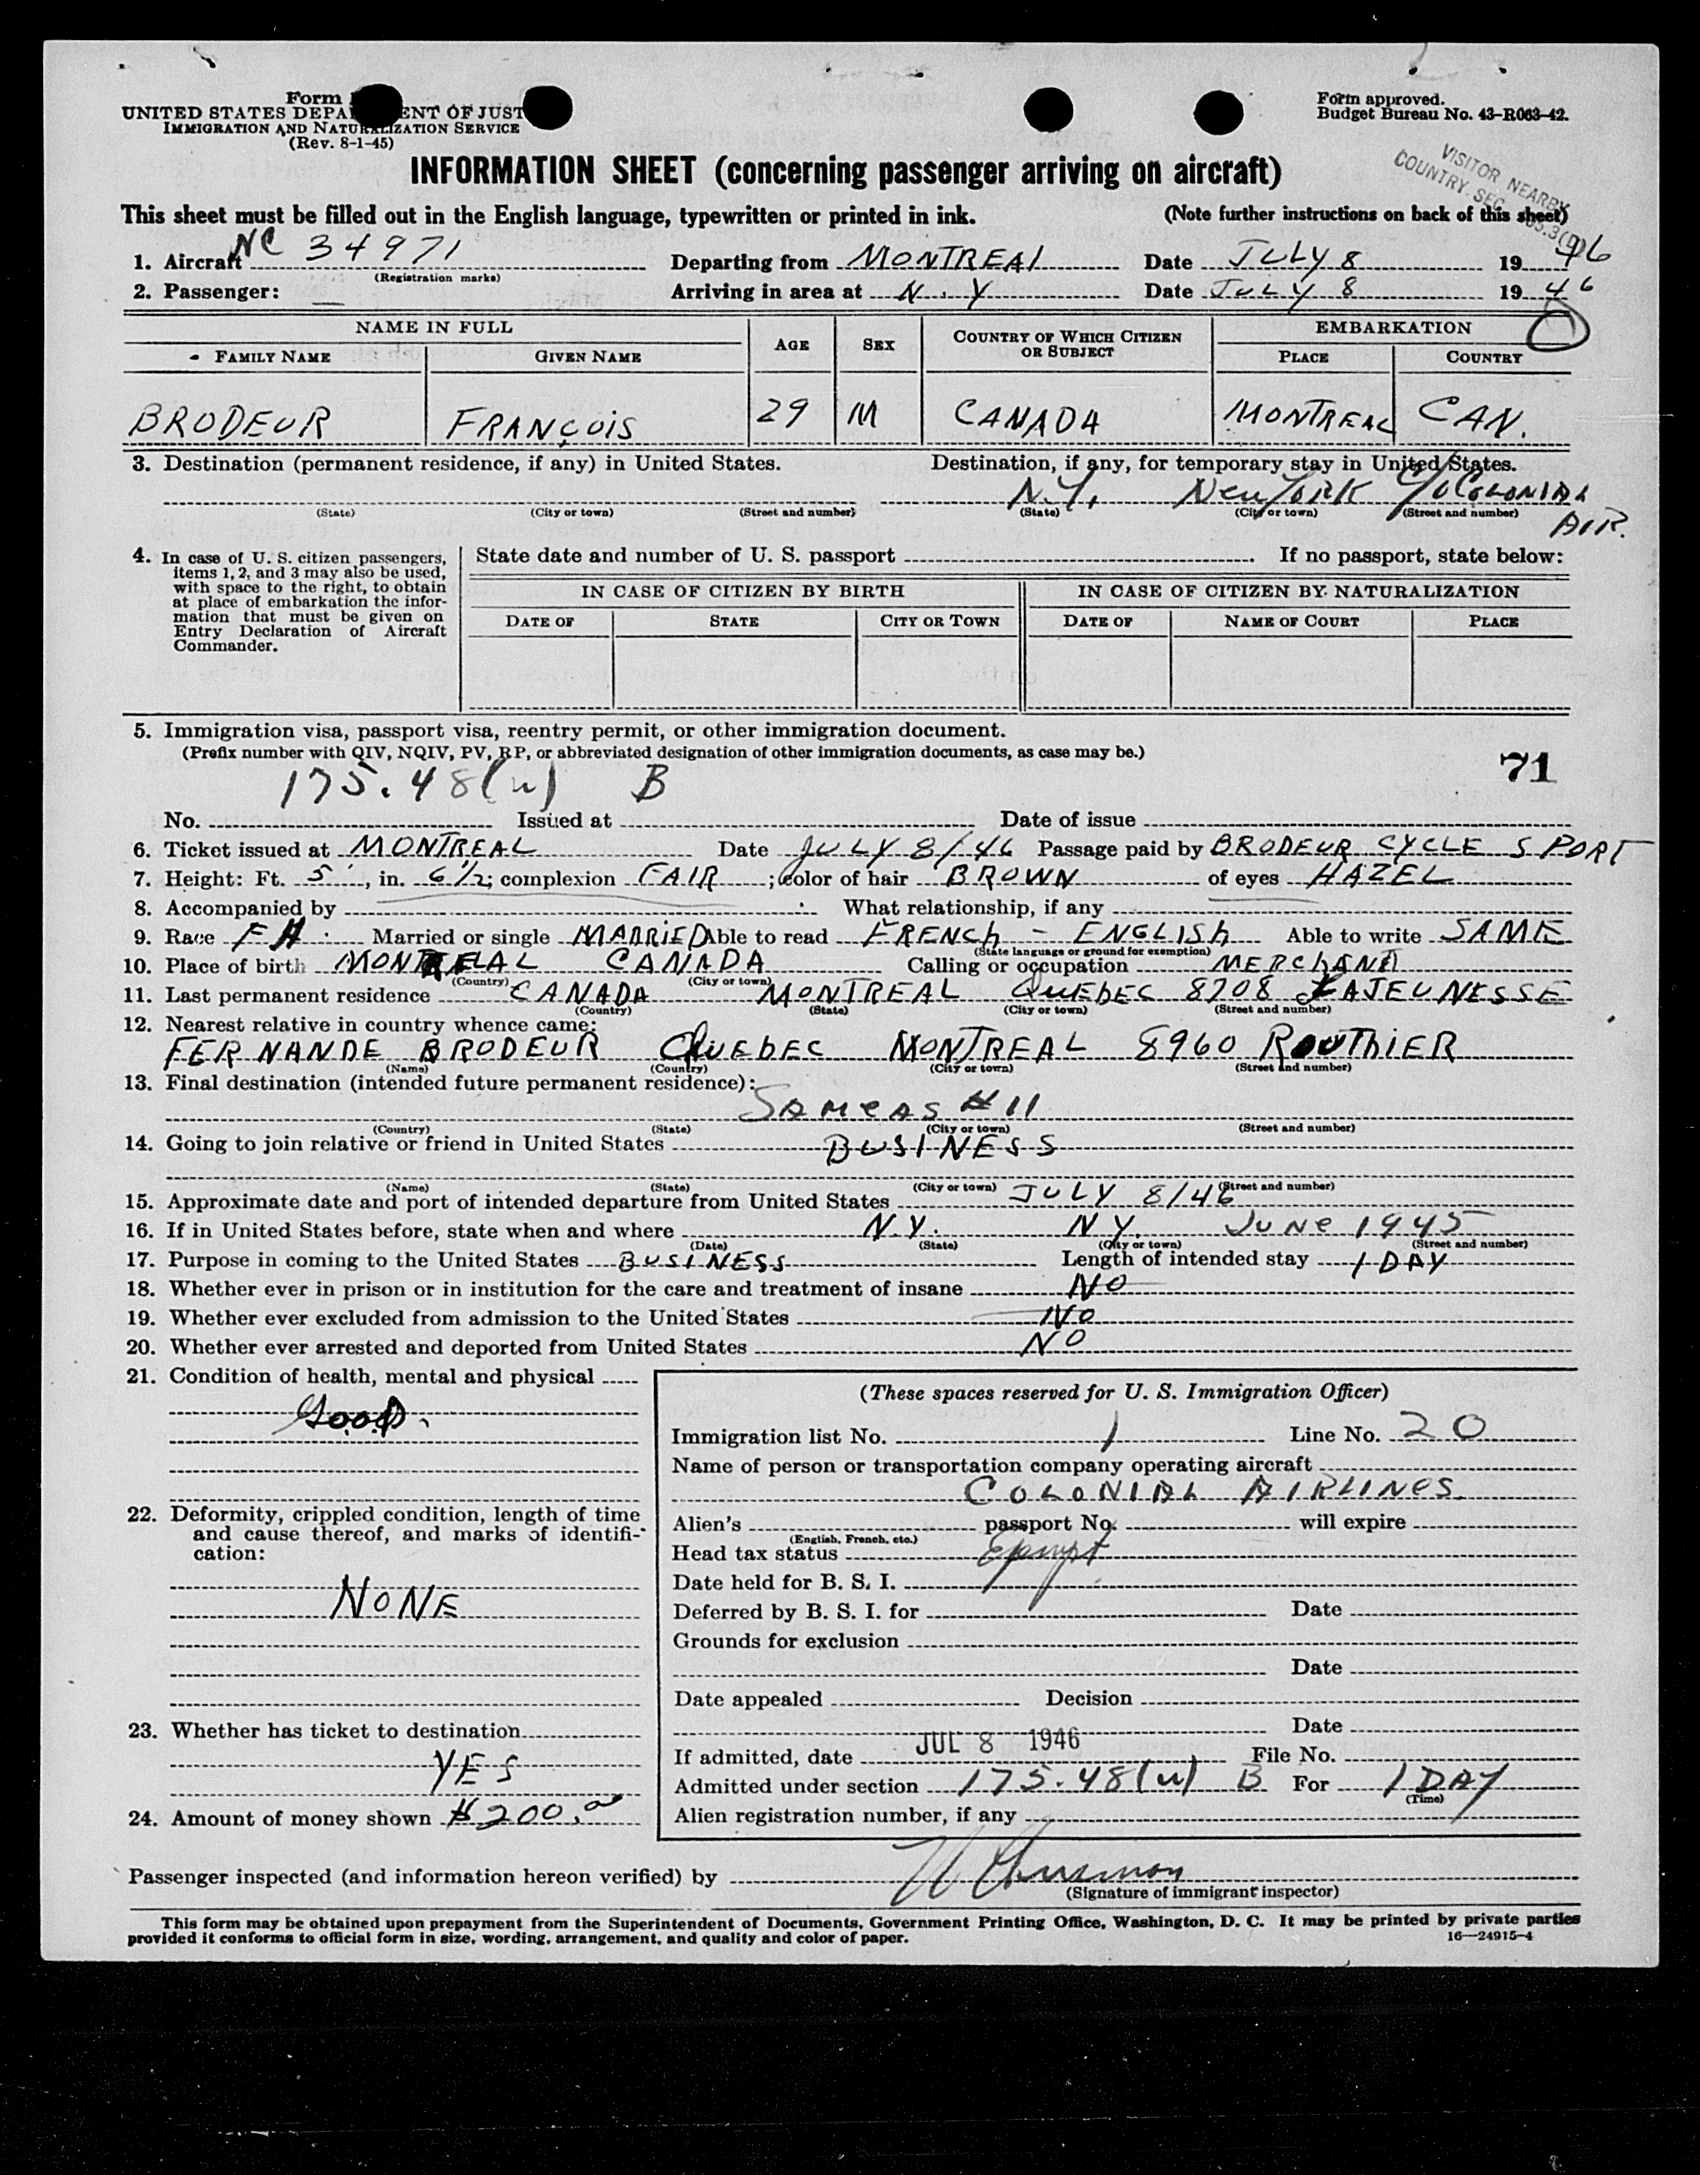 Form
UNITED STATES DEPARTMENT OF JUST
IMMIGRATION AND NATURALIZATION SERVICE
(Rev. 8-1-45)
Form approved.
Budget Bureau No. 43-R063-42.
VISITOR NEARBY
COUNTRY. SEC.
INFORMATION SHEET (concerning passenger arriving on aircraft)
This sheet must be filled out in the English language, typewritten or printed in ink. (Note further instructions on back of this sheet)
1. Aircraft NC 34971 Departing from MONTREAL Date JULY 8 1946
(Registration marks)
2. Passenger: Arriving in area at N.Y Date JULY 8 1946
NAME IN FULL AGE SEX COUNTRY OF WHICH CITIZEN OR SUBJECT EMBARKATION
FAMILY NAME GIVEN NAME PLACE COUNTRY
BRODEUR FRANÇOIS 29 M CANADA MONTREAL CAN.
3. Destination (permanent residence, if any) in United States. Destination, if any, for temporary stay in United States.
N.Y. New YORK C/O COLONIAL
(State) (City or town) (Street and number) (State) (City or town) (Street and number)
AIR.
4. In case of U. S. citizen passengers, items 1, 2, and 3 may also be used, with space to the right, to obtain at place of embarkation the information that must be given on Entry Declaration of Aircraft Commander.
State date and number of U. S. passport If no passport, state below:
IN CASE OF CITIZEN BY BIRTH IN CASE OF CITIZEN BY NATURALIZATION
DATE OF STATE CITY OR TOWN DATE OF NAME OF COURT PLACE
5. Immigration visa, passport visa, reentry permit, or other immigration document.
(Prefix number with QIV, NQIV, PV, RP, or abbreviated designation of other immigration documents, as case may be.)
71
175.48(u) B
No. Issued at Date of issue
6. Ticket issued at MONTREAL Date JULY 8/46 Passage paid by BRODEUR CYCLE SPORT
7. Height: Ft. 5', in. 6 1/2; complexion FAIR; color of hair BROWN of eyes HAZEL
8. Accompanied by What relationship, if any
9. Race FH. Married or single MARRIED Able to read FRENCh - ENGLISh Able to write SAME
(State language or ground for exemption)
10. Place of birth MONTREAL CANADA Calling or occupation MERChANT
(Country) (City or town)
11. Last permanent residence CANADA MONTREAL QUEbEC 8708 LAJEUNESSE
(Country) (State) (City or town) (Street and number)
12. Nearest relative in country whence came:
FERNANDE BRODEUR QUEbEC MONTREAL 8960 ROUThIER
(Name) (Country) (City or town) (Street and number)
13. Final destination (intended future permanent residence):
SAMe AS # 11
(Country) (State) (City or town) (Street and number)
14. Going to join relative or friend in United States BUSINESS
(Name) (State) (City or town) (Street and number)
15. Approximate date and port of intended departure from United States JULY 8/46
16. If in United States before, state when and where N.Y. N.Y. JUNe 1945
(Date) (State) (City or town) (Street and number)
17. Purpose in coming to the United States BUSINESS Length of intended stay 1 DAY
18. Whether ever in prison or in institution for the care and treatment of insane NO
19. Whether ever excluded from admission to the United States NO
20. Whether ever arrested and deported from United States NO
21. Condition of health, mental and physical
GooD.
22. Deformity, crippled condition, length of time and cause thereof, and marks of identification:
NONE
23. Whether has ticket to destination
YES
24. Amount of money shown $200.00
(These spaces reserved for U. S. Immigration Officer)
Immigration list No. 1 Line No. 20
Name of person or transportation company operating aircraft
COLONIAL AIRLINES.
Alien's passport No. will expire
(English, French, etc.)
Head tax status Exempt
Date held for B. S. I.
Deferred by B. S. I. for Date
Grounds for exclusion
Date
Date appealed Decision
Date
If admitted, date JUL 8 1946 File No.
Admitted under section 175.48(u) B For 1 DAY
(Time)
Alien registration number, if any
Passenger inspected (and information hereon verified) by
(Signature of immigrant inspector)
This form may be obtained upon prepayment from the Superintendent of Documents, Government Printing Office, Washington, D. C. It may be printed by private parties
provided it conforms to official form in size, wording, arrangement, and quality and color of paper.
16—24915-4